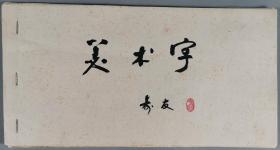 美术字
寿友